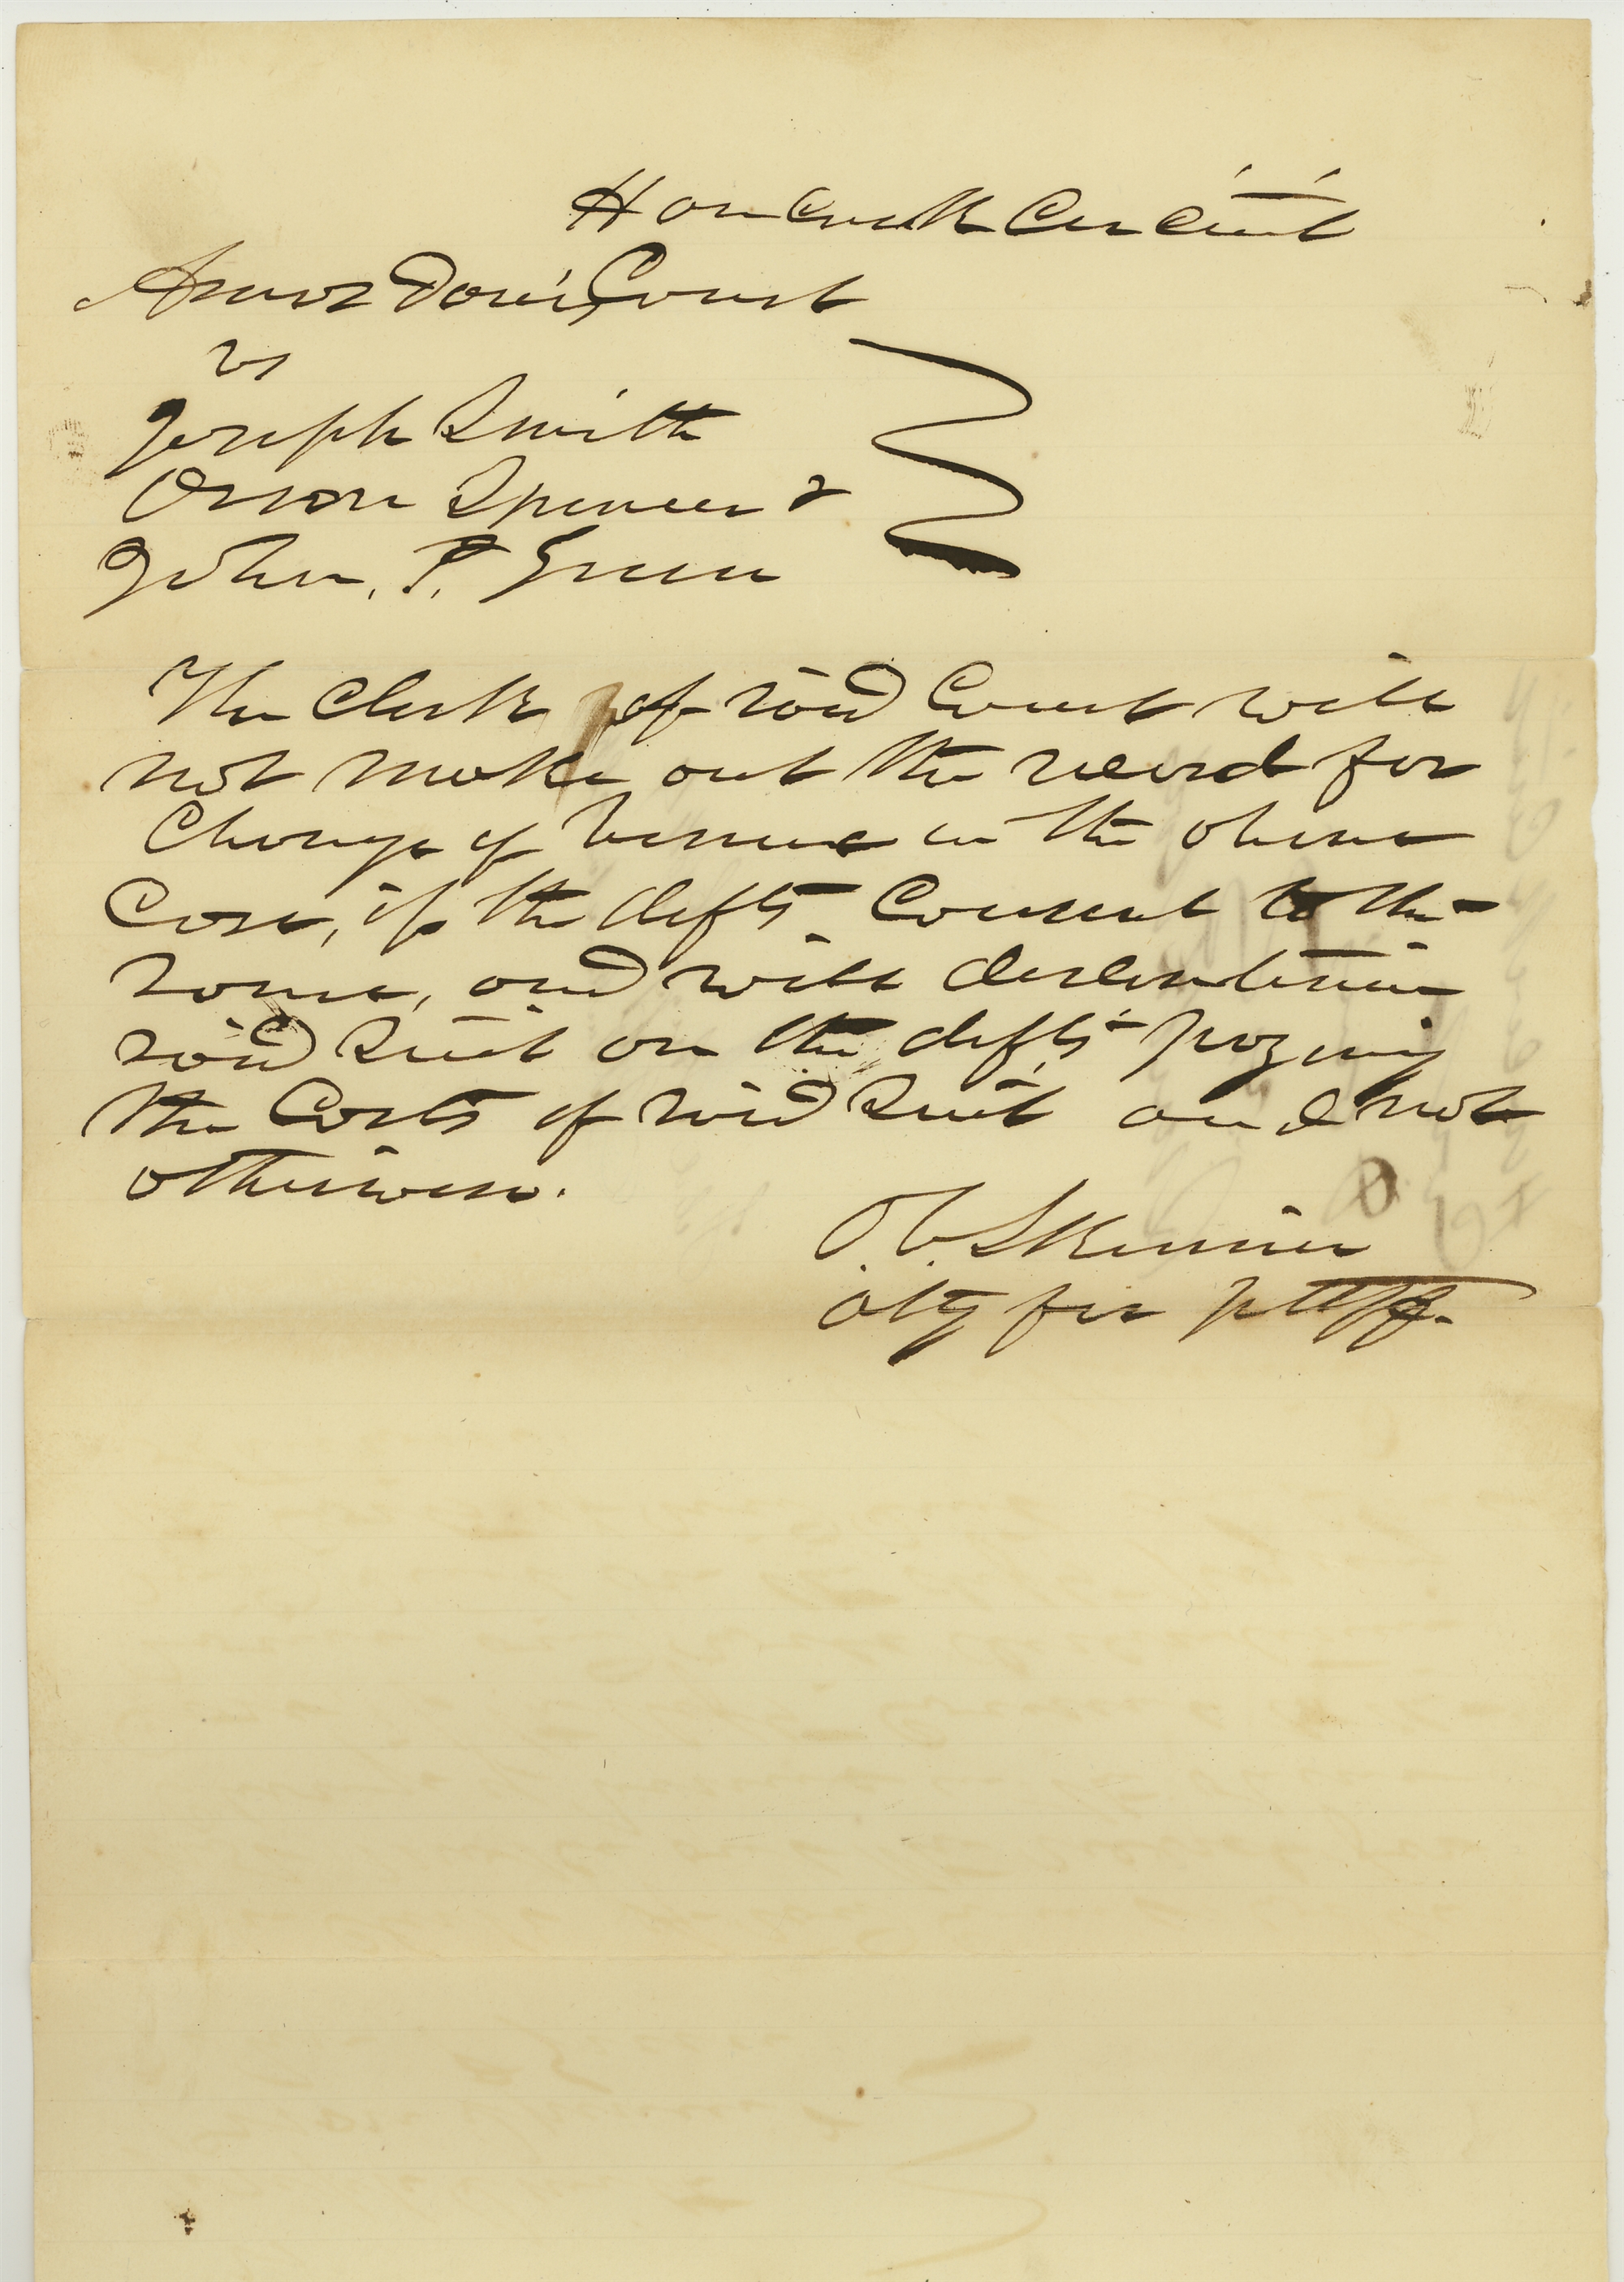 Hancock Circuit
Amos Davis Court
vs
Joseph Smith
Orson Spencer &
John, P. Green
The Clerk of said Court will
not make out the record for
Change of venue in the above
Case, if the defts. Consent to the
same, and will discontinue
said Suit on the defts paying
the Costs of said Suit and not
otherwise.
O. C. Skinner
atty for pltff.